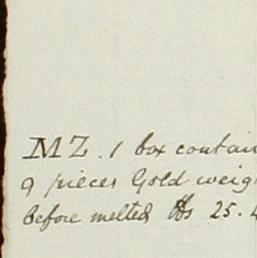 MZ. 1 box contain
9 pieces Gold weig
before melted lbs 25.4